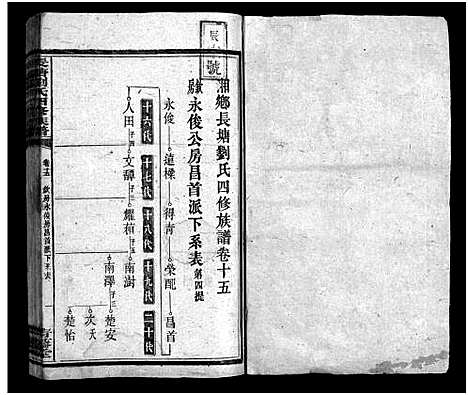 號
湘鄉長塘劉氏四修族譜卷十五
永俊公房昌首派下系表 第四提
永俊 蓮樑 得青 榮配 昌首
十六代 十七代 十八代 十九代 二十代
人田 文辭 耀楨 南澍 楚安
次天
南澤 楚怡
卷十五 欽房永俊房昌首派下系表